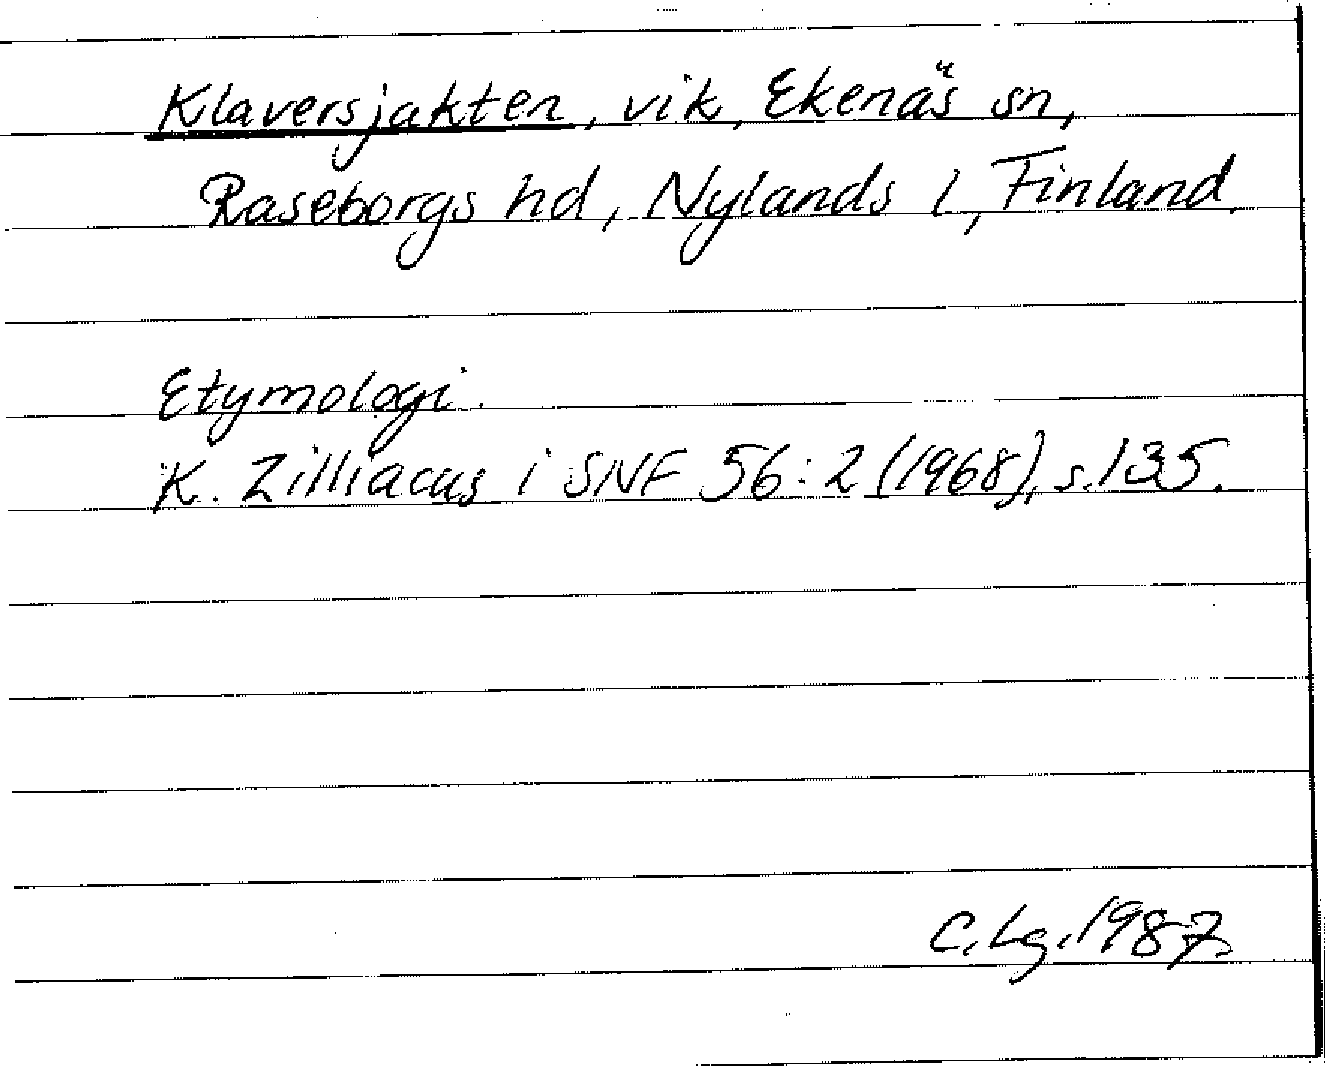 Klaversjakten, vik, Ekenäs sn,
Raseborgs hd, Nylands l, Finland.
Etymologi.
K. Zilliacus i SNF 56:2 (1968), s. 135.
C. Lg. 1987.